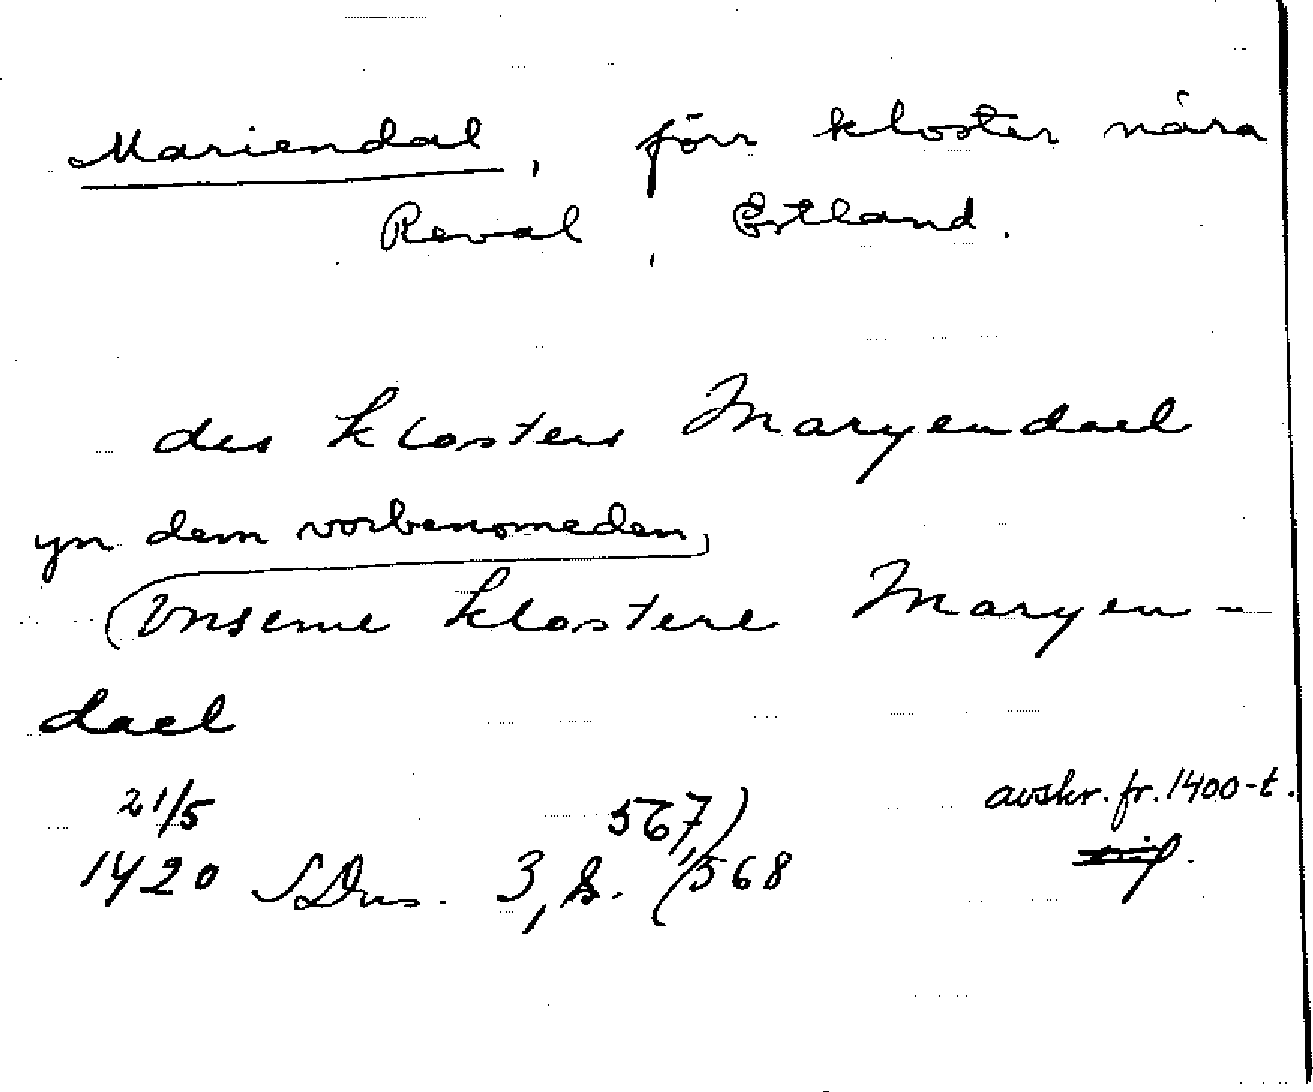 Mariendal, förr kloster nära
Reval, Estland.
des klosters Maryendael
yn dem vorbenomeden,
(vnseme klostere Maryen-
dael
21/5 567,) avskr. fr. 1400-t.
1420 SDns. 3, s. (568